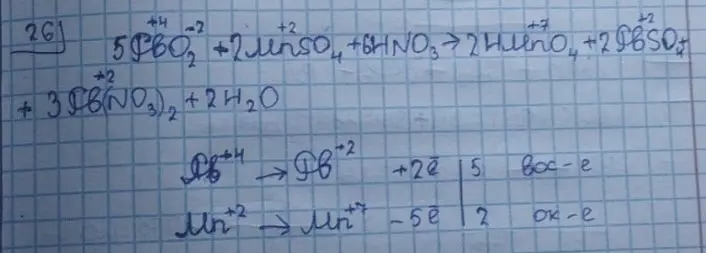 26)
5PbO₂ + 2MnSO₄ + 6HNO₃ → 2HMnO₄ + 2PbSO₄ +
+ 3Pb(NO₃)₂ + 2H₂O
Pb⁺⁴ → Pb⁺² +2ē | 5 вос-е
Mn⁺² → Mn⁺⁷ -5ē | 2 ок-е